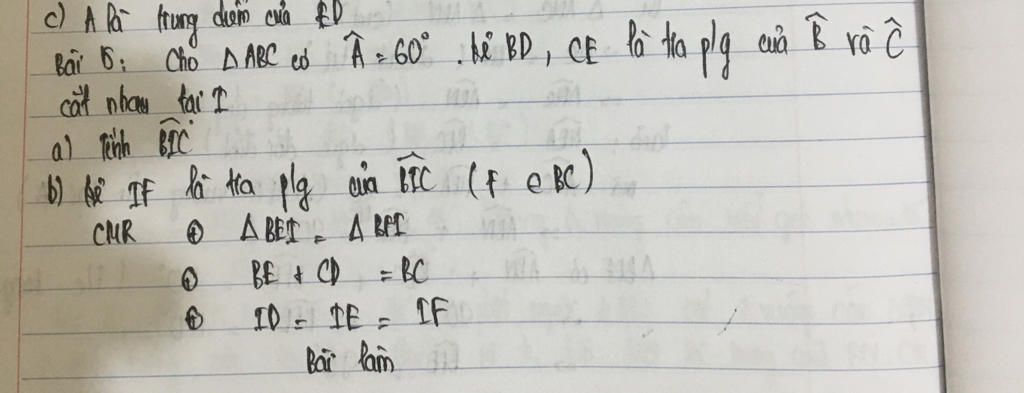 c) A là trung điểm của ED
Bài 5: Cho Δ ABC có Â = 60°. kẻ BD, CE là tia p/g của B̂ và Ĉ
cắt nhau tại I
a) Tính B͡IC
b) kẻ IF là tia p/g của B͡IC (F ∈ BC)
CMR ⊕ Δ BEI = Δ BFI
⊕ BE + CD = BC
⊕ ID = IE = IF
Bài làm